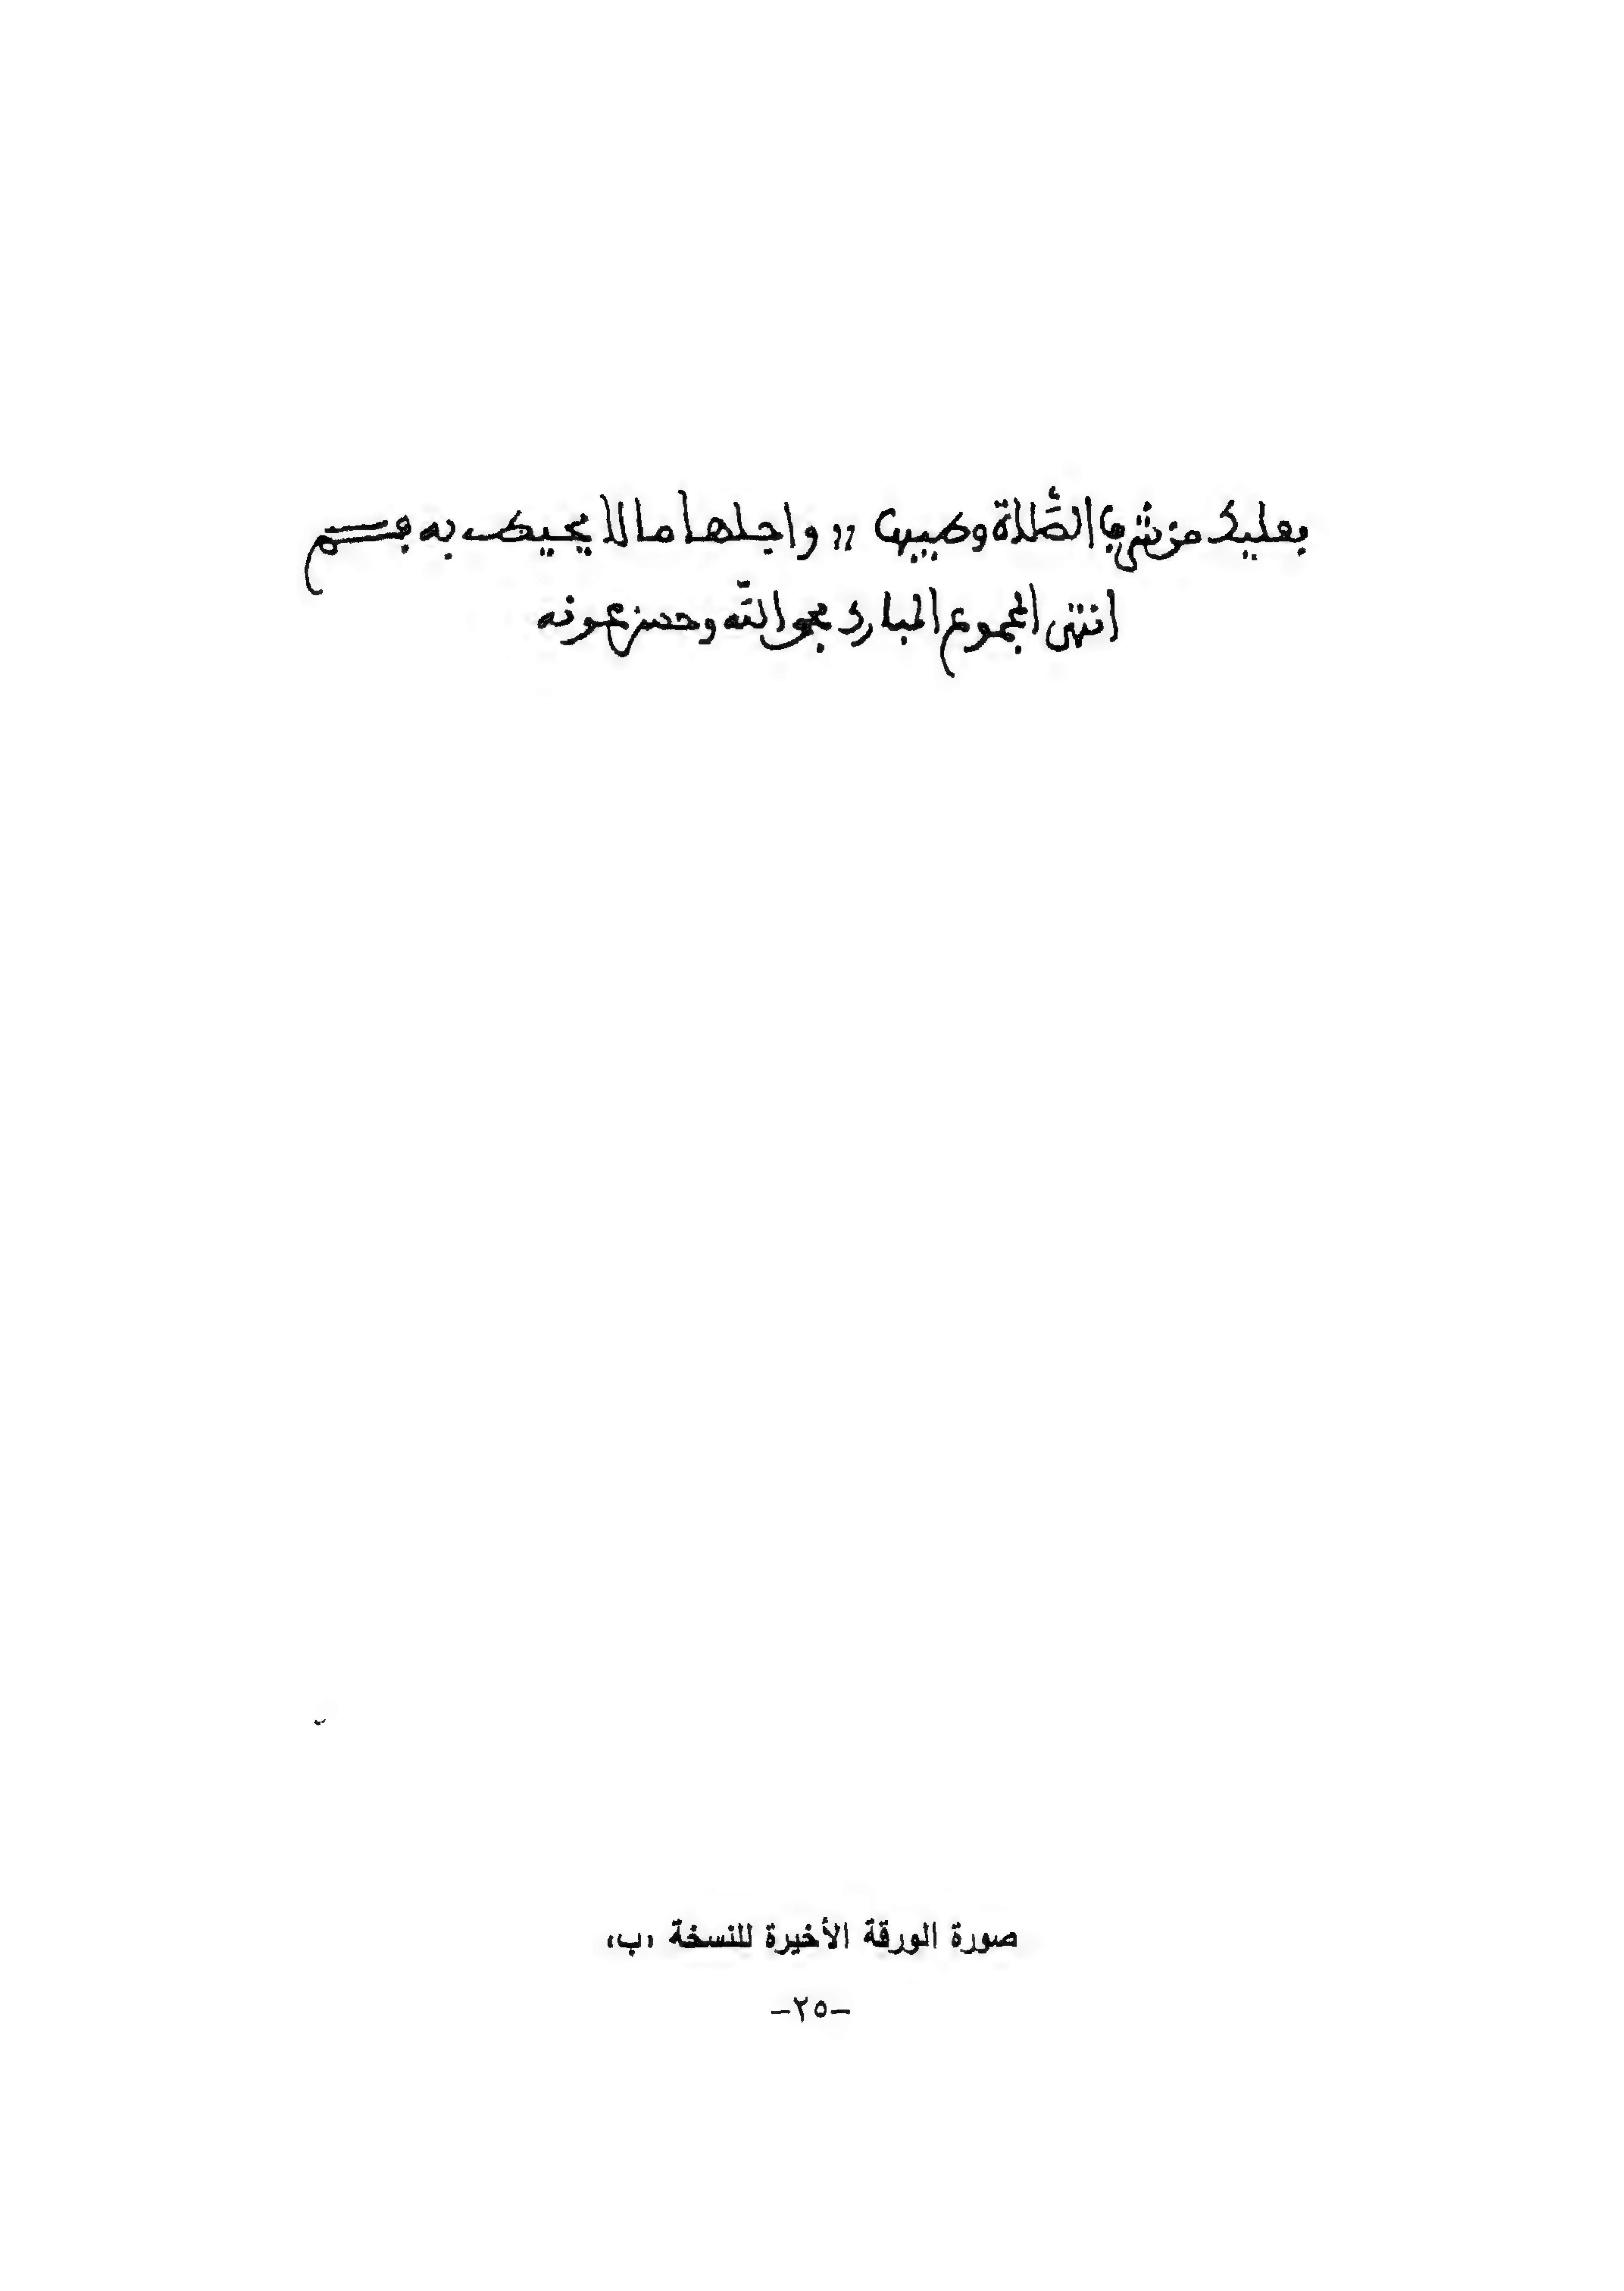 فعليك من شرف الصَّلاة وطيبها ,, واجلها ما لا يحيط به فم
انتهى المجموع المبارك بحول اللّه وحسن عونه
صورة الورقة الأخيرة للنسخة «ب»
-٢٥-